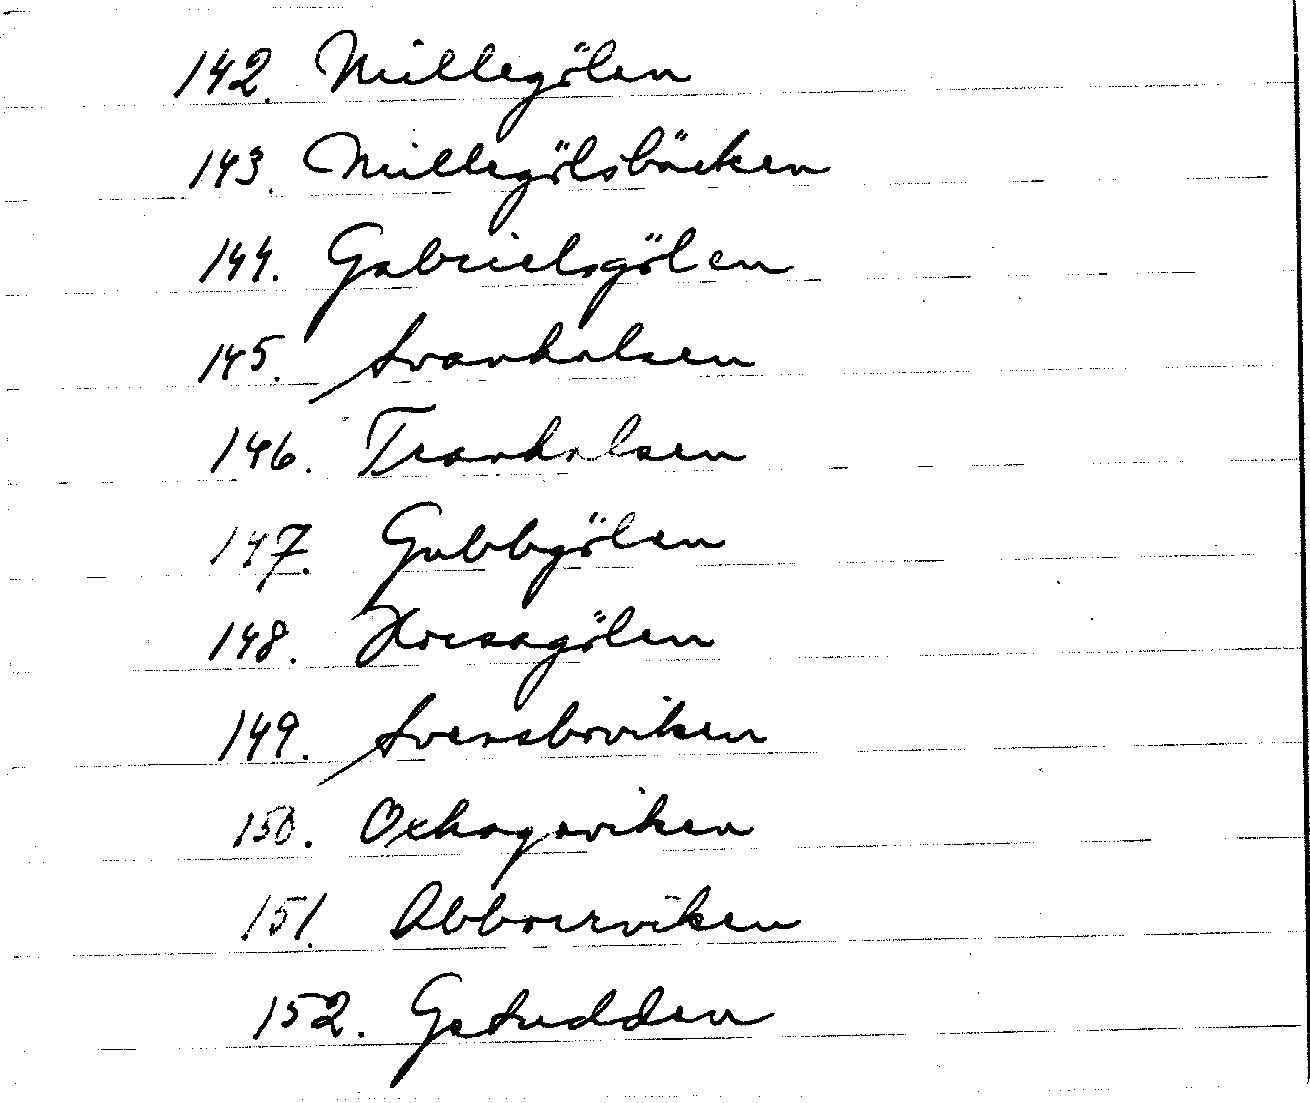 142. Millegölen
143. Millegölsbäcken
144. Gabrielsgölen
145. Svanhalsen
146. Tranhalsen
147. Gubbgölen
148. Korsagölen
149. Svensboviken
150. Oxhagaviken
151. Abborrviken
152. Getudden